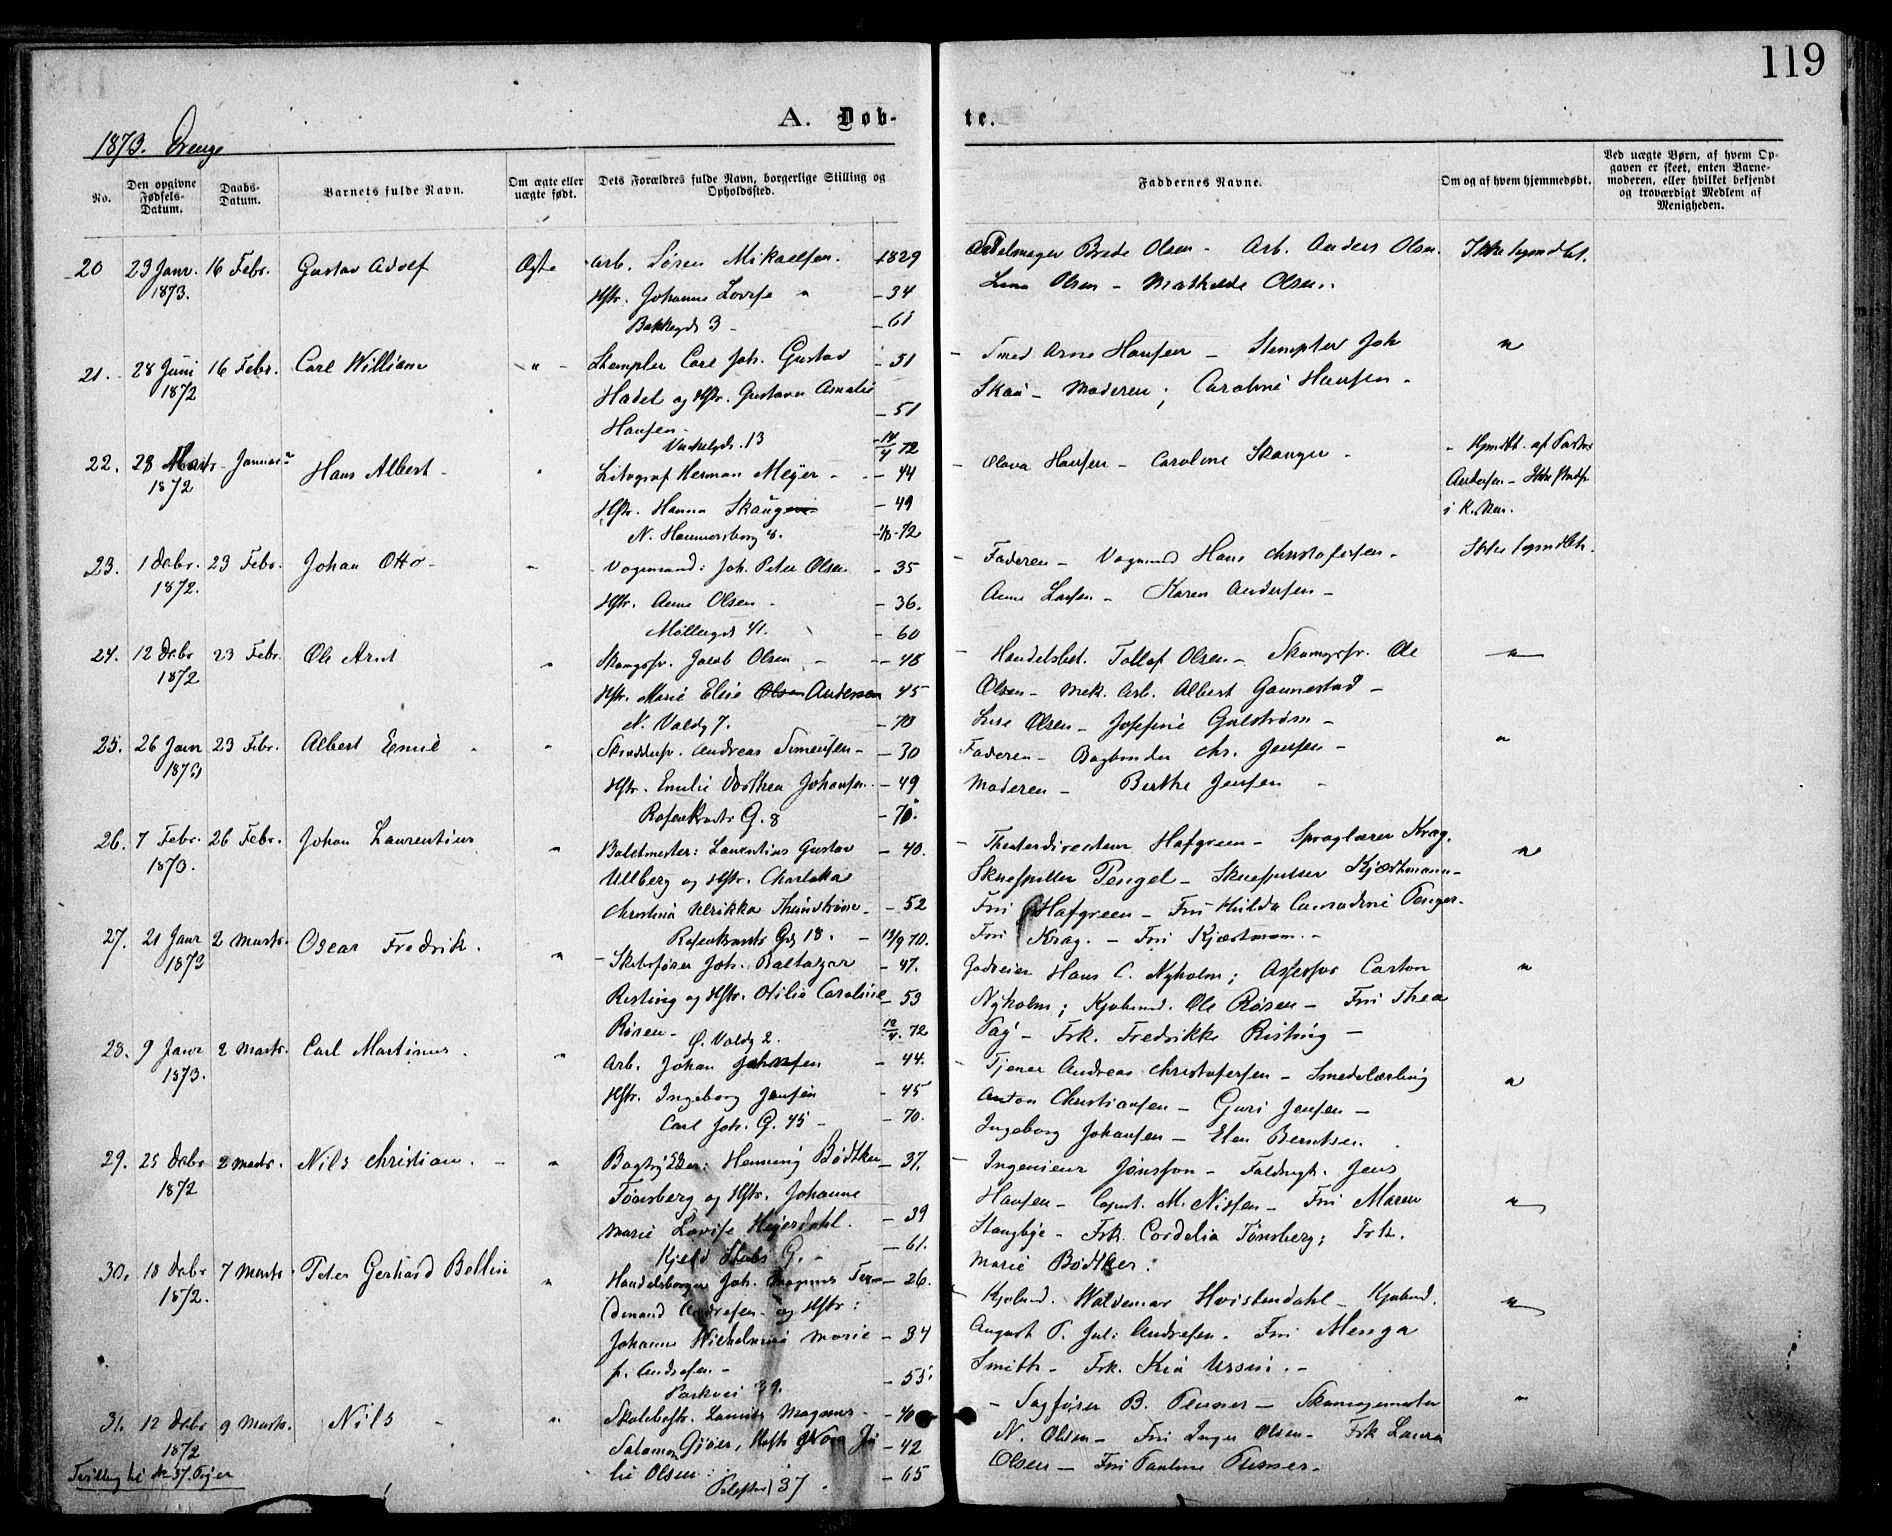 119
A. Døb-
te.
1873. Drenge
No.
Den opgivne Fødsels-Datum.
Daabs-Datum.
Barnets fulde Navn.
Om ægte eller uægte født.
Dets Forældres fulde Navn, borgerlige Stilling og Opholdssted.
Faddernes Navne.
Om og af hvem hjemmedøbt.
Ved uægte Børn, af hvem Opgaven er skeet, enten Barnemoderen, eller hvilket bekjendt og troværdigt Medlem af Menigheden.
20 23 Janr. 16 Febr. Gustav Adolf Ægte Arb. Søren Mikaelsen. - 1829 Brede Olsen - Arb. Anders Olsen.
1873. Hstr. Johanne Lovise " - 34 Lina Olsen - Mathilde Olsen.
Bakkegd 3 - - 61
21. 28 Juni 16 Febr. Carl William " Stempler Carl Joh. Gustav - 51 - Smed Arne Hansen - Stempler Joh "
1872 Hadel og Hstr. Gustava Amalie - 51 Skau - Moderen; Caroline Hansen -
Hansen - 13 72
22. 28 Marts Januar Hans Albert - " Litograf Herman Meyer - - 44 - Olava Hansen - Caroline Skauger -
1872 Hstr. Hanna Skaug - 49 Andersen -
N. Hammersborg 8. - 72
23. 1 Debr. 23 Febr. Johan Otto - " Vognmand: Joh. Peter Olsen - 35 - Faderen - Vognmd Hans Christofersen -
1872. Hstr. Anne Olsen - - 36. Anne Larsen - Karen Andersen -
Møllergd 41. - 60
24. 12 Debr 23 Febr. Ole Arnt " Skomgsv. Jacob Olsen - - 48 - Handelsbet. Tollof Olsen - Skomgsv. Ole "
1872 Hstr. Marie Elise Olsen Andersen 45 Olsen - Mek. Arb. Albert Gaunestad -
N. Valdg 7. - 70 Lise Olsen - Josefine Gulstrøm -
25. 26 Janr 23 Febr. Albert Emil " Skræddersv. Andreas Simensen - - 30 Faderen - Bogbinder Chr. Jensen - "
1873 Hstr. Emilie Dorthea Johansen - 49 Moderen - Berthe Jensen -
Rosenkrants G. 8 - 70.
26. 7 Febr. 26 Febr. Johan Laurentius " Baletmester: Laurentius Gustav - 40. - Theaterdirecteur Hafgreen - Sproglærer Krag. "
1873. Ullberg og Hstr. Charlotta Skuespiller Pengel - Skuespiller Kjærtmann -
Christina Ulrikka Thunstrøm - 52 Fru Hafgreen - Fru Hulda
Rosenkrants Gd 18. - 13/9 70. Fru Krag. - Fru Kjærtmann. -
27. 21 Janr 2 Marts. Oscar Fredrik. " Skibsfører Joh. Baltazar - 47. Hans C. Nyholm; Assessor Carton "
1873 Risting og Hstr. Otilie Caroline - 53 Nyholm; Kjøbmd. Ole Røsen - Fru Thea
Røsen - Ø. Valdg 2. 72 - Frk. Fredrikke Risting -
28. 9 Janr 2 Marts. Carl Martinus. " Arb. Johan Johansen - 44. - Tjener Andreas Christofersen - Smedelærling "
1873. Hstr. Ingeborg Jensen - 45 Anton Christiansen - Guri Jensen -
Carl Joh. G. 45 - - 70. Ingeborg Johansen - Elen Berntsen.
29. 25 Debr 2 Marts. Nils Christian. - " Bogtrykker: Henning Bødtker - 37. - Ingenieur Jonsson - Jens
1872 Tønsberg og Hstr. Johanne Hansen - Capt. M. Nissen - Fru Maren "
Marie Lovise Heyerdahl. - 39 Stangbye - Frk. Cordelia Tønsberg; Frk.
Kjeld Stubs G. - - 61. Marie Bødtker.
30. 18 Debr 7 Marts. Peter Gerhard Bellin " Handelsborger Joh. Magnus Fer- - 26. - Kjøbmd. Waldemar Hvistendahl - Kjøbmd. "
1872. dinand Andresen - og Hstr: August T. Jul. Andresen - Fru Menga
Johanne Wilhelmine Marie - 34 Smith - Frk. Kia Ursin. -
f. Andresen -
Parkvei 39. - 55.
31. 12 Debr 9 Marts. Nils - " Skolebestr. Lauritz Magnus - - 40 - Sagfører B. Penner - Skomagermester "
1872 Salamon Gjøer, Hstr. Nora Ju- - 42 N. Olsen - Fru Inger Olsen - Frk Laura
Tvilling til No 37. Piger lie Olsen: - 65 Olsen - Fru Pauline
Pilestræ 37.